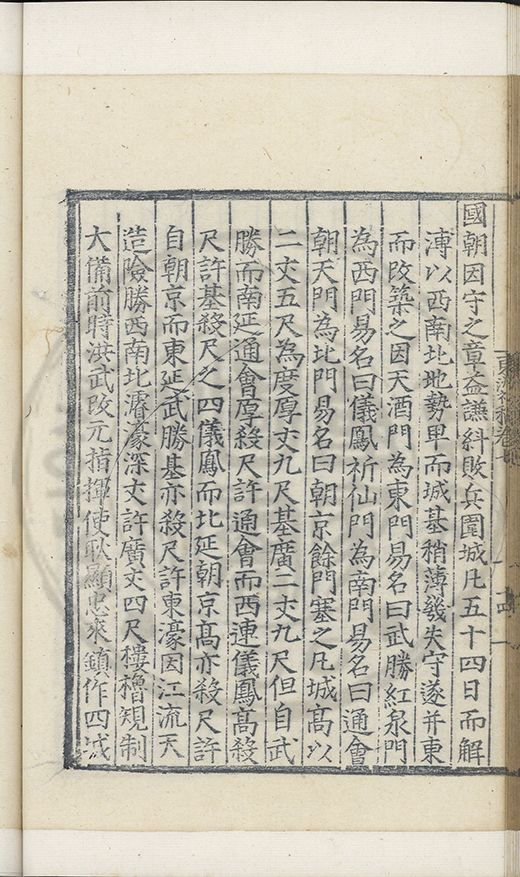 國朝因守之章益謙糾敗兵圍城凡五十四日而解
溥以西南北地勢卑而城基稍薄幾失守遂并東
而改築之因天酒門為東門易名曰武勝紅泉門
為西門易名曰儀鳳祈仙門為南門易名曰通會
朝天門為北門易名曰朝京餘門塞之凡城高以
二丈五尺為度厚丈九尺基廣二丈九尺但自武
勝而南延通會厚殺尺許通會而西連儀鳳高殺
尺許基殺尺之四儀鳳而北延朝京高亦殺尺許
自朝京而東延武勝基亦殺尺許東濠因江流天
造險勝西南北濬濠深丈許廣丈四尺樓櫓規制
大備前時洪武改元指揮使耿顯忠來鎮作四城